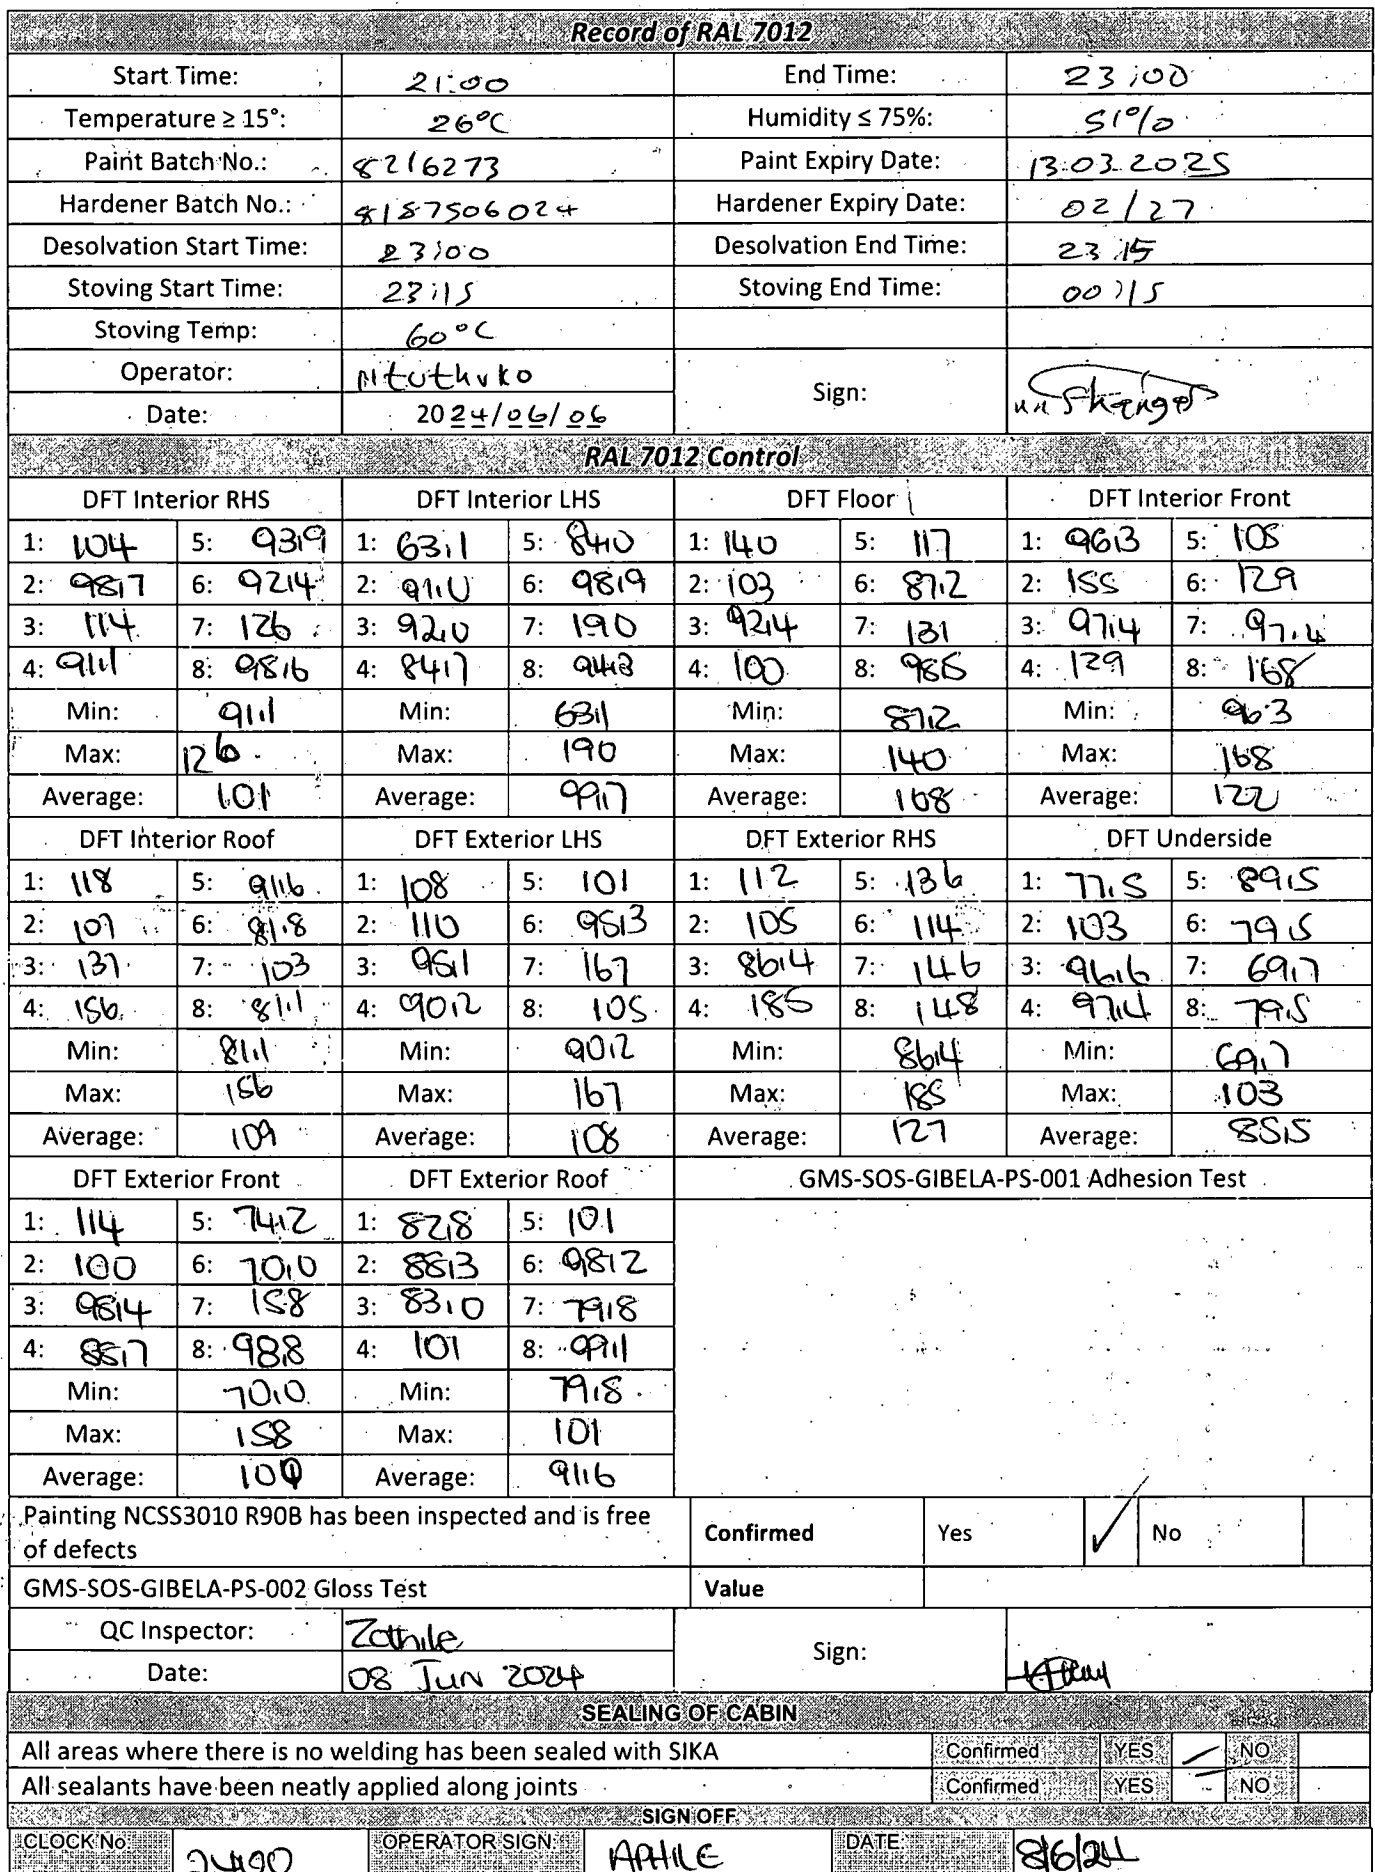 Record of RAL 7012
Start Time: 21:00 End Time: 23:00
Temperature ≥ 15°: 26°C Humidity ≤ 75%: 51%
Paint Batch No.: 8216273 Paint Expiry Date: 13.03.2025
Hardener Batch No.: 8187506024 Hardener Expiry Date: 02/27
Desolvation Start Time: 23:00 Desolvation End Time: 23:15
Stoving Start Time: 23:15 Stoving End Time: 00:15
Stoving Temp: 60°C
Operator: Ntuthuko
Sign:
Date: 2024/06/06
RAL 7012 Control
DFT Interior RHS DFT Interior LHS DFT Floor DFT Interior Front
1: 104 5: 93,9 1: 63,1 5: 84,0 1: 140 5: 117 1: 96,3 5: 105
2: 98,7 6: 92,4 2: 91,0 6: 98,9 2: 103 6: 87,2 2: 155 6: 129
3: 114 7: 126 3: 92,0 7: 190 3: 92,4 7: 131 3: 97,4 7: 97,4
4: 91,1 8: 98,6 4: 84,7 8: 94,3 4: 100 8: 98,5 4: 129 8: 168
Min: 91,1 Min: 63,1 Min: 87,2 Min: 96,3
Max: 126 Max: 190 Max: 140 Max: 168
Average: 101 Average: 99,7 Average: 108 Average: 122
DFT Interior Roof DFT Exterior LHS DFT Exterior RHS DFT Underside
1: 118 5: 91,6 1: 108 5: 101 1: 112 5: 136 1: 77,5 5: 89,5
2: 107 6: 81,8 2: 110 6: 95,3 2: 105 6: 114 2: 103 6: 79,5
3: 137 7: 103 3: 95,1 7: 167 3: 86,4 7: 146 3: 96,6 7: 69,7
4: 156 8: 81,1 4: 90,2 8: 105 4: 185 8: 148 4: 97,4 8: 79,5
Min: 81,1 Min: 90,2 Min: 86,4 Min: 69,7
Max: 156 Max: 167 Max: 185 Max: 103
Average: 109 Average: 108 Average: 127 Average: 85,5
DFT Exterior Front DFT Exterior Roof GMS-SOS-GIBELA-PS-001 Adhesion Test
1: 114 5: 74,2 1: 82,8 5: 101
2: 100 6: 70,0 2: 88,3 6: 98,2
3: 98,4 7: 158 3: 83,0 7: 79,8
4: 88,7 8: 98,8 4: 101 8: 99,1
Min: 70,0 Min: 79,8
Max: 158 Max: 101
Average: 100 Average: 91,6
Painting NCSS3010 R90B has been inspected and is free
of defects
Confirmed Yes ✓ No
GMS-SOS-GIBELA-PS-002 Gloss Test Value
QC Inspector: Zothile
Sign:
Date: 08 JUN 2024
SEALING OF CABIN
All areas where there is no welding has been sealed with SIKA Confirmed YES NO
All sealants have been neatly applied along joints Confirmed YES NO
SIGN OFF
CLOCK No OPERATOR SIGN: APHILE DATE: 8/6/24